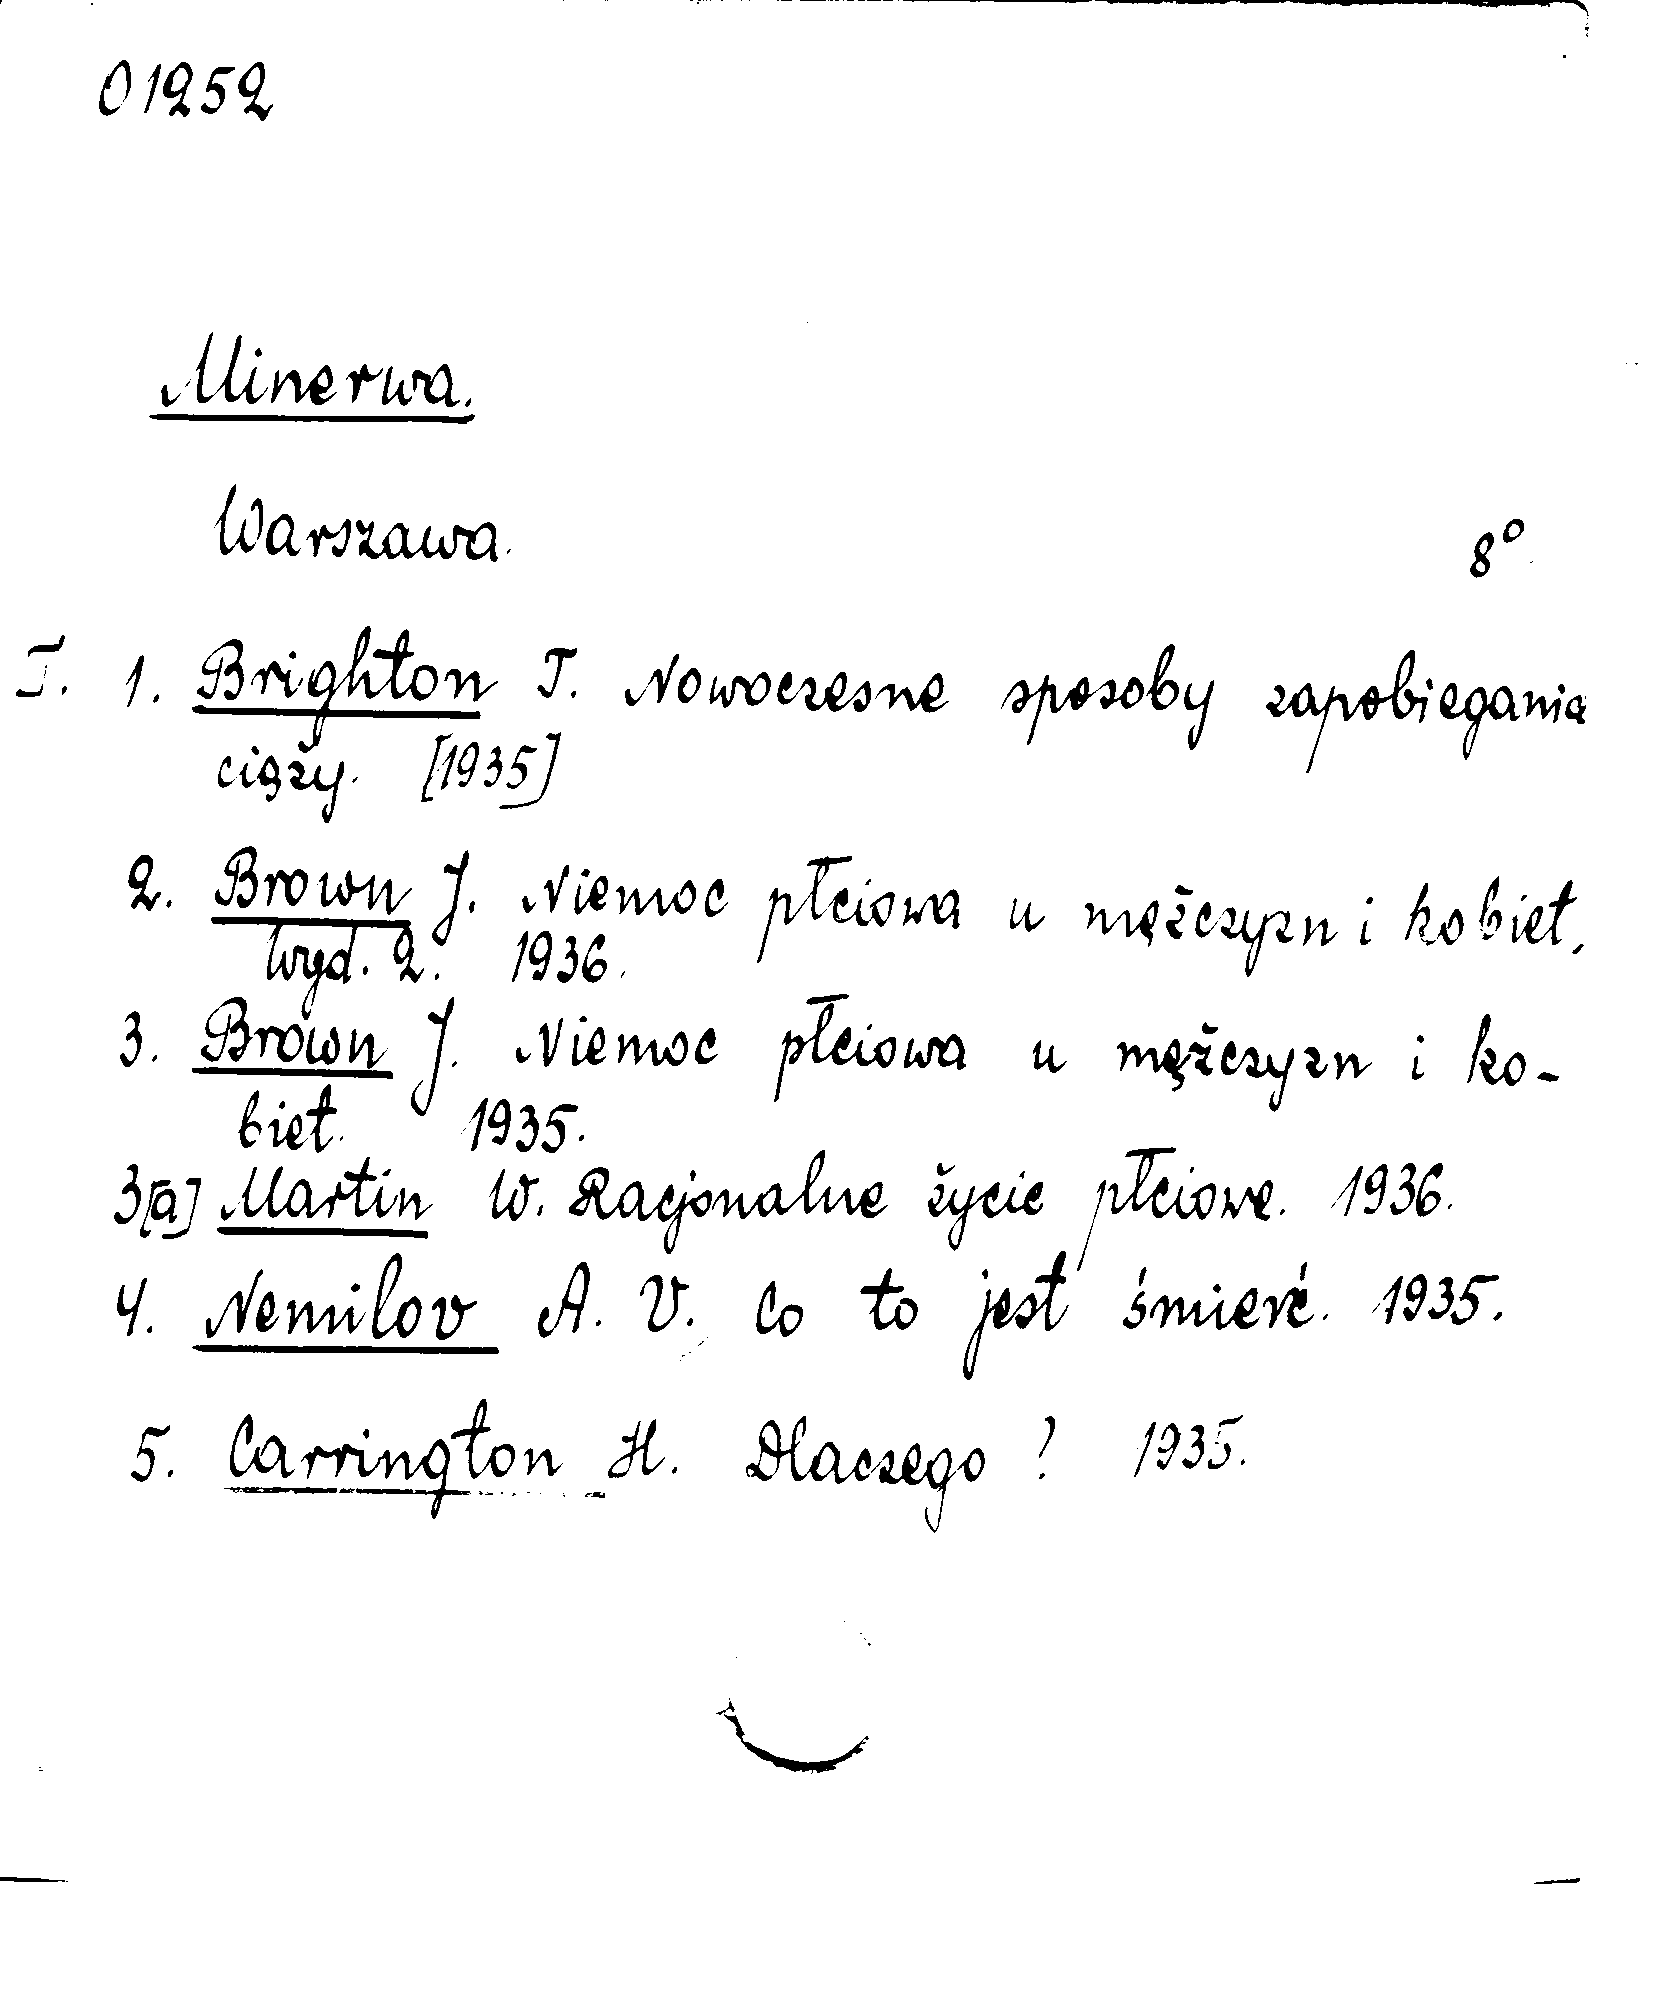 01252
Minerwa.
Warszawa. 8°
I. 1. Brighton T. Nowoczesne sposoby zapobiegania
ciąży. [1935]
2. Brown J. Niemoc płciowa u mężczyzn i kobiet.
Wyd. 2. 1936.
3. Brown J. Niemoc płciowa u mężczyzn i ko-
biet. 1935.
3[a] Martin W. Racjonalne życie płciowe. 1936.
4. Nemilov A. V. Co to jest śmierć. 1935.
5. Carrington H. Dlaczego? 1935.